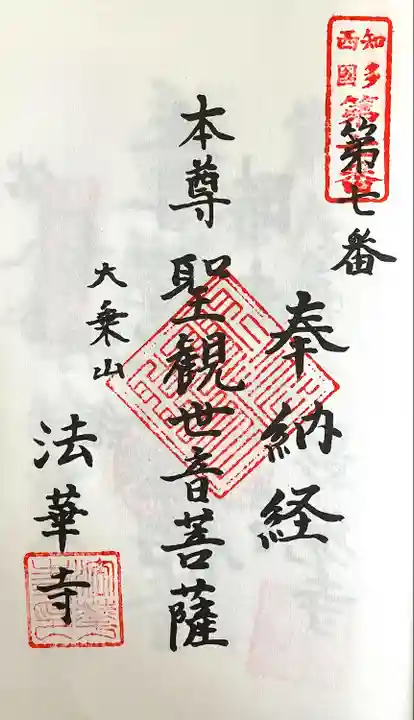 知多
西國
第七番
奉納経
本尊 聖觀世音菩薩
大乗山
法華寺